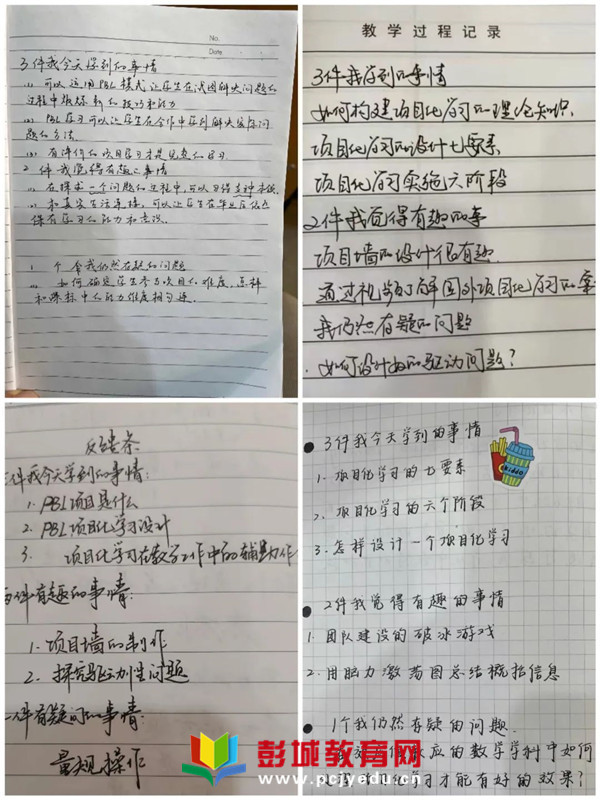 No.
Date
3件我今天学到的事情
(1) 可以运用PBL模式让学生在试图解决问题的
过程中锻炼新的技巧和能力
(2) PBL学习可以让学生在合作中学到解决实际问
题的方法.
(3) 有评价的项目学习才是完整的学习
2件我觉得有趣的事情
(1) 在探求一个问题的过程中,可以习得多种本领.
(2) 和真实生活连接,可以让学生在毕业后依然
保有学习的能力和意识.
1个令我仍然存疑的问题
(1) 如何确定学生参与项目的难度,怎样
和课标中的能力维度相匹适.
教学过程记录
3件我学到的事情
如何构建项目化学习的理论知识.
项目化学习的设计七要素
项目化学习实施六阶段
2件我觉得有趣的事
项目墙的设计很有趣.
通过视频了解国外项目化学习的案
我仍然有疑的问题
如何设计好的驱动问题?
反馈条
三件我今天学到的事情:
1. PBL项目是什么
2. PBL项目化学习设计
3. 项目化学习在教学工作中的辅助作
两件有趣的事情:
1. 项目墙的制作
2. 探究驱动性问题
一件有疑问的事情:
量规操作
3件我今天学到的事情
Chiddo
1. 项目化学习的七要素
2. 项目化学习的六个阶段
3. 怎样设计一个项目化学习
2件我觉得有趣的事情
1. 团队建设的破冰游戏
2. 用脑力激荡图总结概括信息
1个我仍然存疑的问题.
应的数学学科中如何
学习才能有好的效果?
彭城教育网
www.pcjyedu.cn